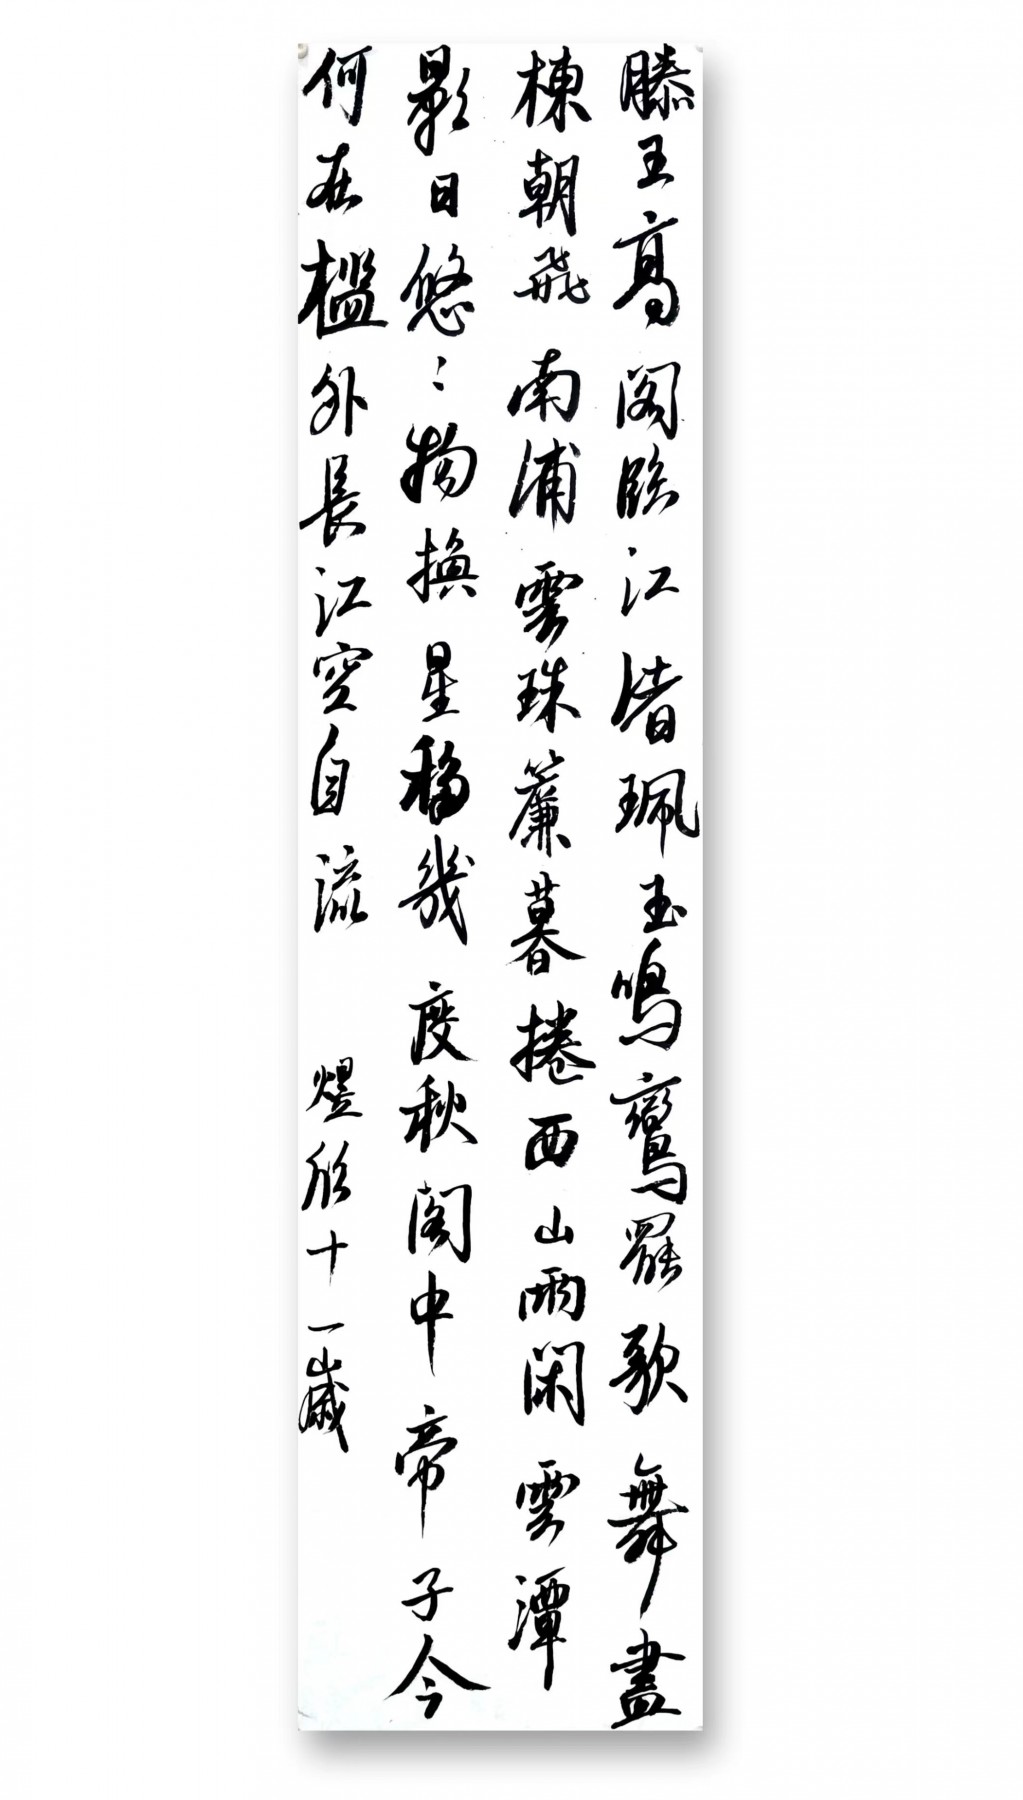 滕王高閣臨江渚珮玉鳴鸞罷歌舞畫
棟朝飛南浦雲珠簾暮捲西山雨閑雲潭
影日日悠〻物換星移幾度秋閣中帝子今
何在檻外長江空自流
煜欣十一歲